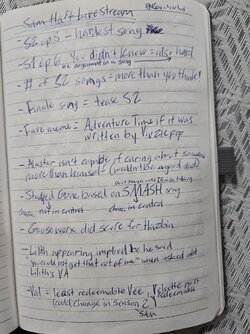 Sam Haft Livestream
- S2 ep5 - hardest song
- S1 ep6 You didn't know = also hard
bc argument in a song
- # of S2 songs = more than you think!
- Finale song = tease S2
- Fave meme = Adventure Time if it was
written by Vivziepop
- Alastor isn't capable of caring about someone
more than himself (wouldn't be angered deal)
- Stayed Gone based on SMASH song
not in control
in control
- Gooseworx did score for Hazbin
- Lilith appearing implied bc he said
"you could not get that out of me" when asked abt
Lilith's VA
- Val = least redeemable Vee
(could change in Season 2)
Velvette most
redeemable
Sam